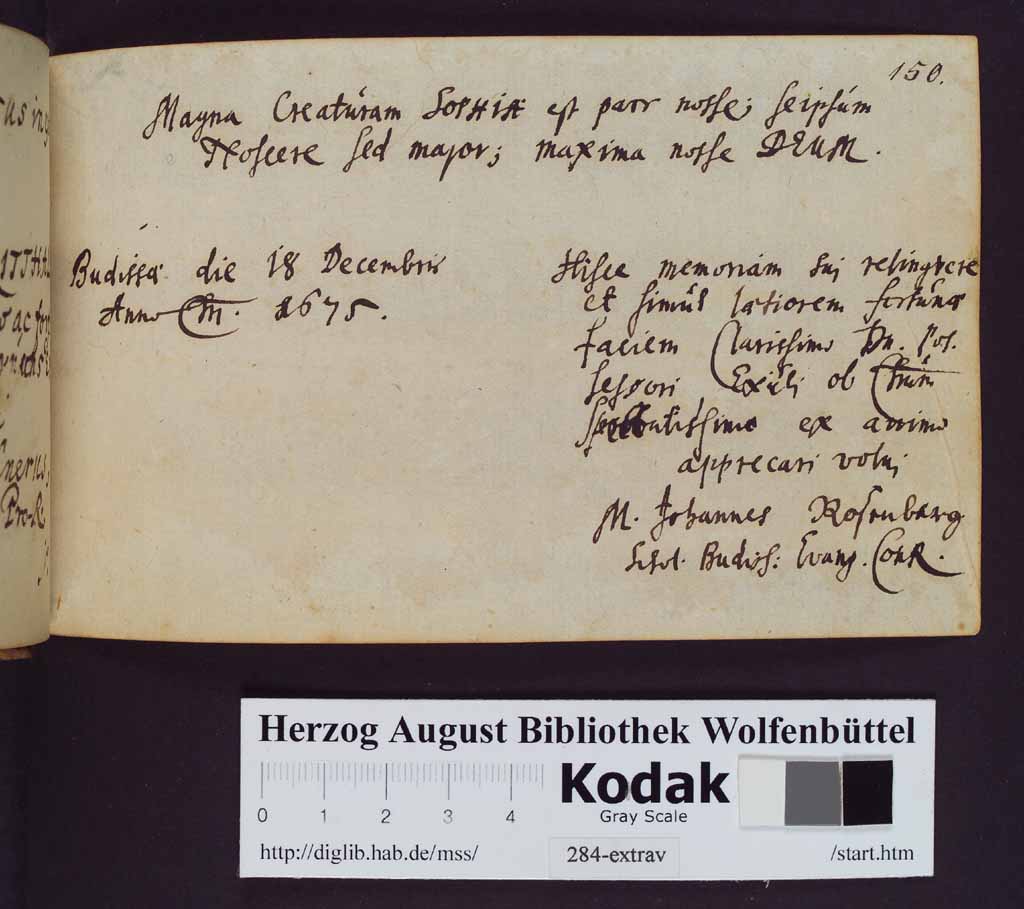 150.
Magna Creatúram est nosse; seipsúm
Noscere sed major; maxima nosse DEUM.
Budissæ die 18 Decembris
Anno 1675.
Hisce memoriam sui relinqvere
et simúl lætiorem fortúnæ
faciem Clarissimo Dn. Pos-
sessori Exúli ob Chrúm
ex animo
apprecari volui
M. Johannes Rosenberg
Schol. Budiss: Evang. ConR.
us in
nerus,
Pro-R.
Herzog August Bibliothek Wolfenbüttel
0 1 2 3 4
Kodak
Gray Scale
http://diglib.hab.de/mss/
284-extrav
/start.htm